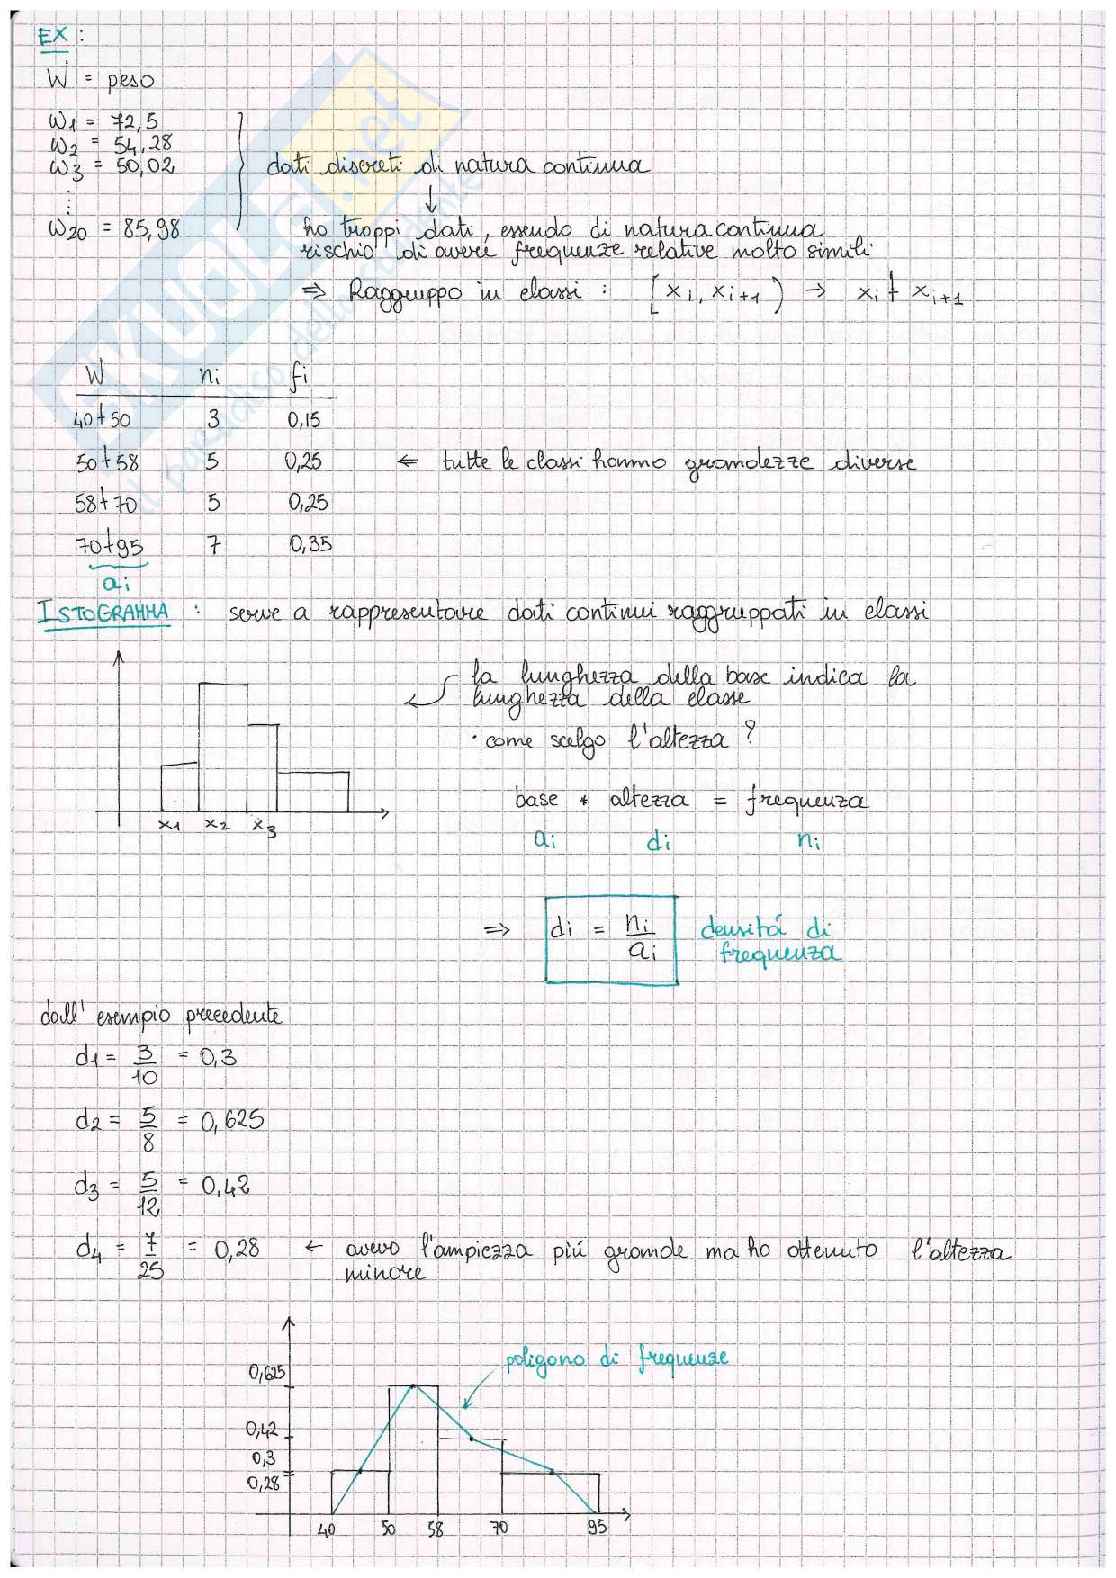 EX :
W = peso
ω1 = 72,5
ω2 = 54,28
ω3 = 50,02
⋮
ω20 = 85,98
dati discreti di natura continua
↓
ho troppi dati, essendo di natura continua
rischio di avere frequenze relative molto simili
⇒ Raggruppo in classi : [xi, xi+1) → xi ⊢ xi+1
W ni fi
40⊢50 3 0,15
50⊢58 5 0,25 ← tutte le classi hanno grandezze diverse
58⊢70 5 0,25
70⊢95 7 0,35
ai
ISTOGRAMMA : serve a rappresentare dati continui raggruppati in classi
la lunghezza della base indica la
lunghezza della classe
· come scelgo l'altezza ?
x1 x2 x3
base * altezza = frequenza
ai di ni
⇒ di = ni/ai densitá di
frequenza
dall' esempio precedente
d1 = 3/10 = 0,3
d2 = 5/8 = 0,625
d3 = 5/12 = 0,42
d4 = 7/25 = 0,28 ← avevo l'ampiezza piú grande ma ho ottenuto l'altezza
minore
poligono di frequenze
0,625
0,42
0,3
0,28
40 50 58 70 95
SKUOLA.net
il portale dello studente